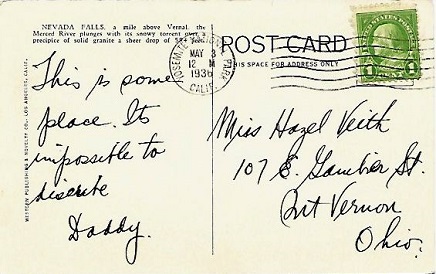 NEVADA FALLS, a mile above Vernal, the
Merced River plunges with its snowy torrent over a
precipice of solid granite a sheer drop of
POST CARD
THIS SPACE FOR ADDRESS ONLY
YOSEMITE NATIONAL PARK
MAY 3
12 M
1936
CALIF.
UNITED STATES POSTAGE
1 1
WESTERN PUBLISHING & NOVELTY CO., LOS ANGELES, CALIF.
This is some
place. Its
impossible to
discribe
Daddy.
Miss Hazel Veith
107 E. Gambier St.
Mt Vernon
Ohio.